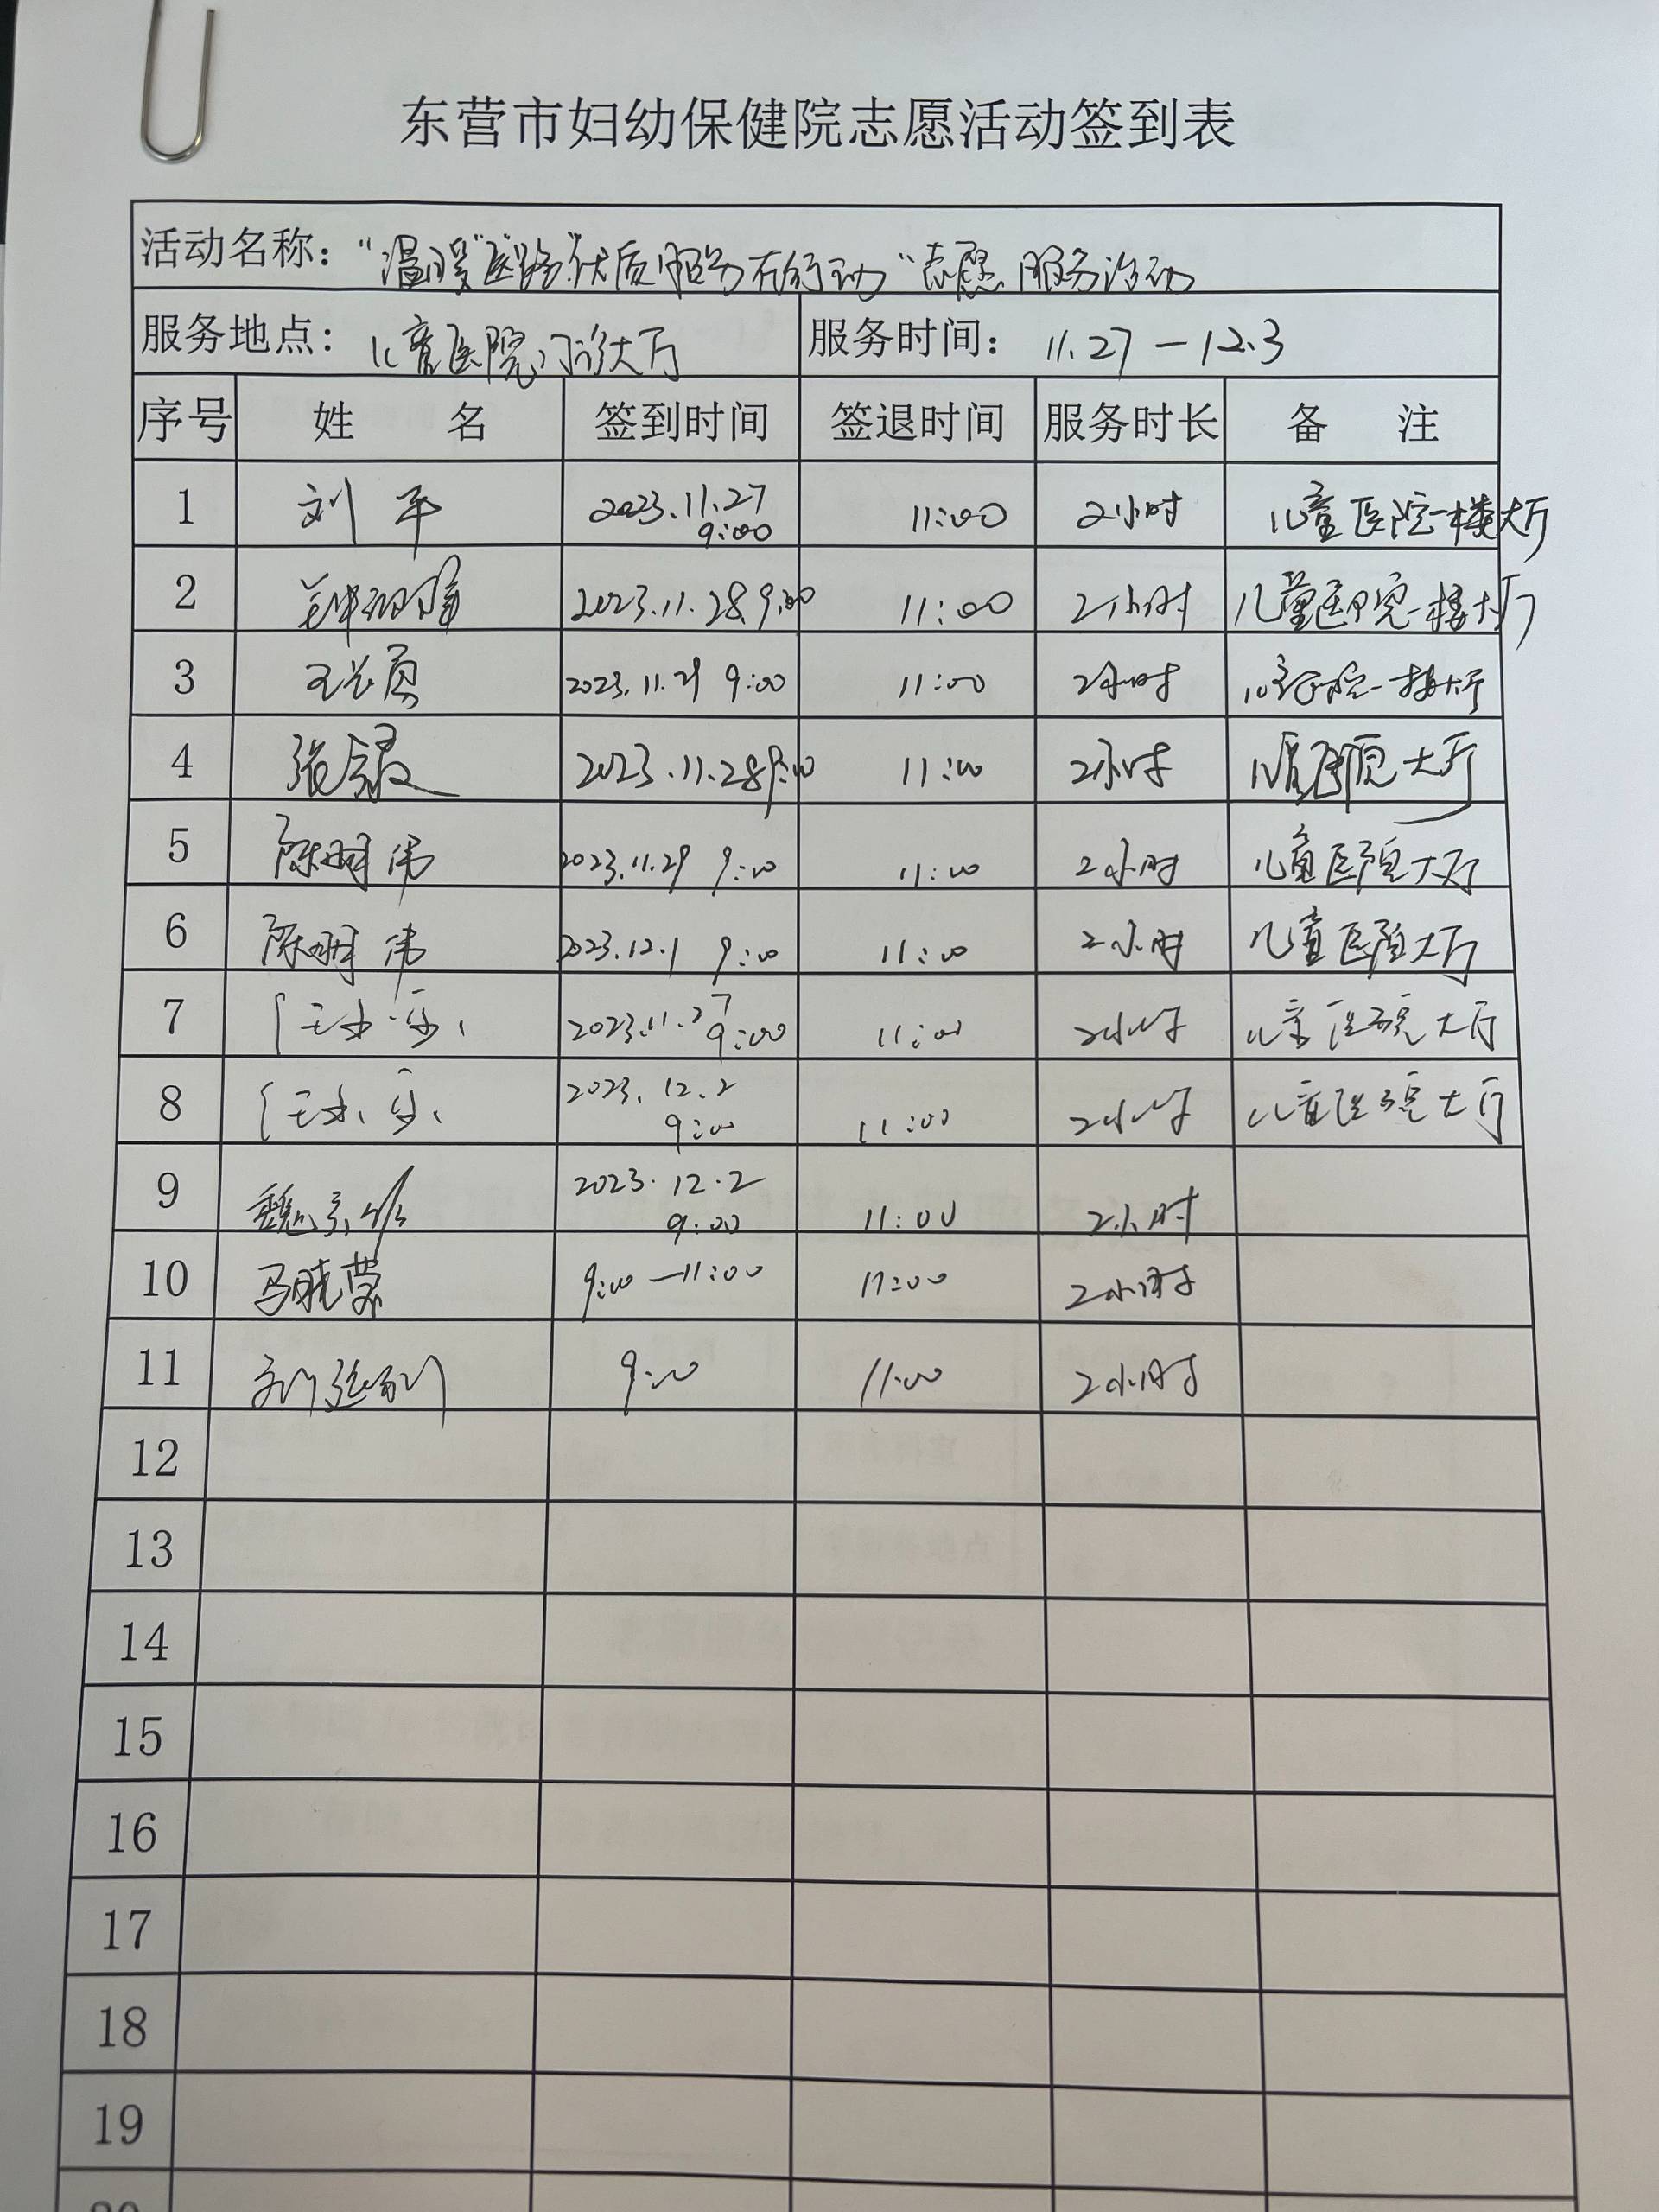 东营市妇幼保健院志愿活动签到表
活动名称：“温暖”医路“优质服务在行动”志愿服务活动
服务地点：儿童医院门诊大厅 服务时间：11.27－12.3
序号 姓名 签到时间 签退时间 服务时长 备注
1 刘平 2023.11.27 9:00 11:00 2小时 儿童医院一楼大厅
2 2023.11.28 9:00 11:00 2小时 儿童医院一楼大厅
3 2023.11.29 9:00 11:00 2小时 儿童医院一楼大厅
4 2023.11.28 9:00 11:00 2小时 儿童医院大厅
5 陈明伟 2023.11.29 9:00 11:00 2小时 儿童医院大厅
6 陈明伟 2023.12.1 9:00 11:00 2小时 儿童医院大厅
7 2023.11.27 9:00 11:00 2小时 儿童医院大厅
8 2023.12.2 9:00 11:00 2小时 儿童医院大厅
9 2023.12.2 9:00 11:00 2小时
10 马晓蒙 9:00－11:00 11:00 2小时
11 9:00 11:00 2小时
12
13
14
15
16
17
18
19
20